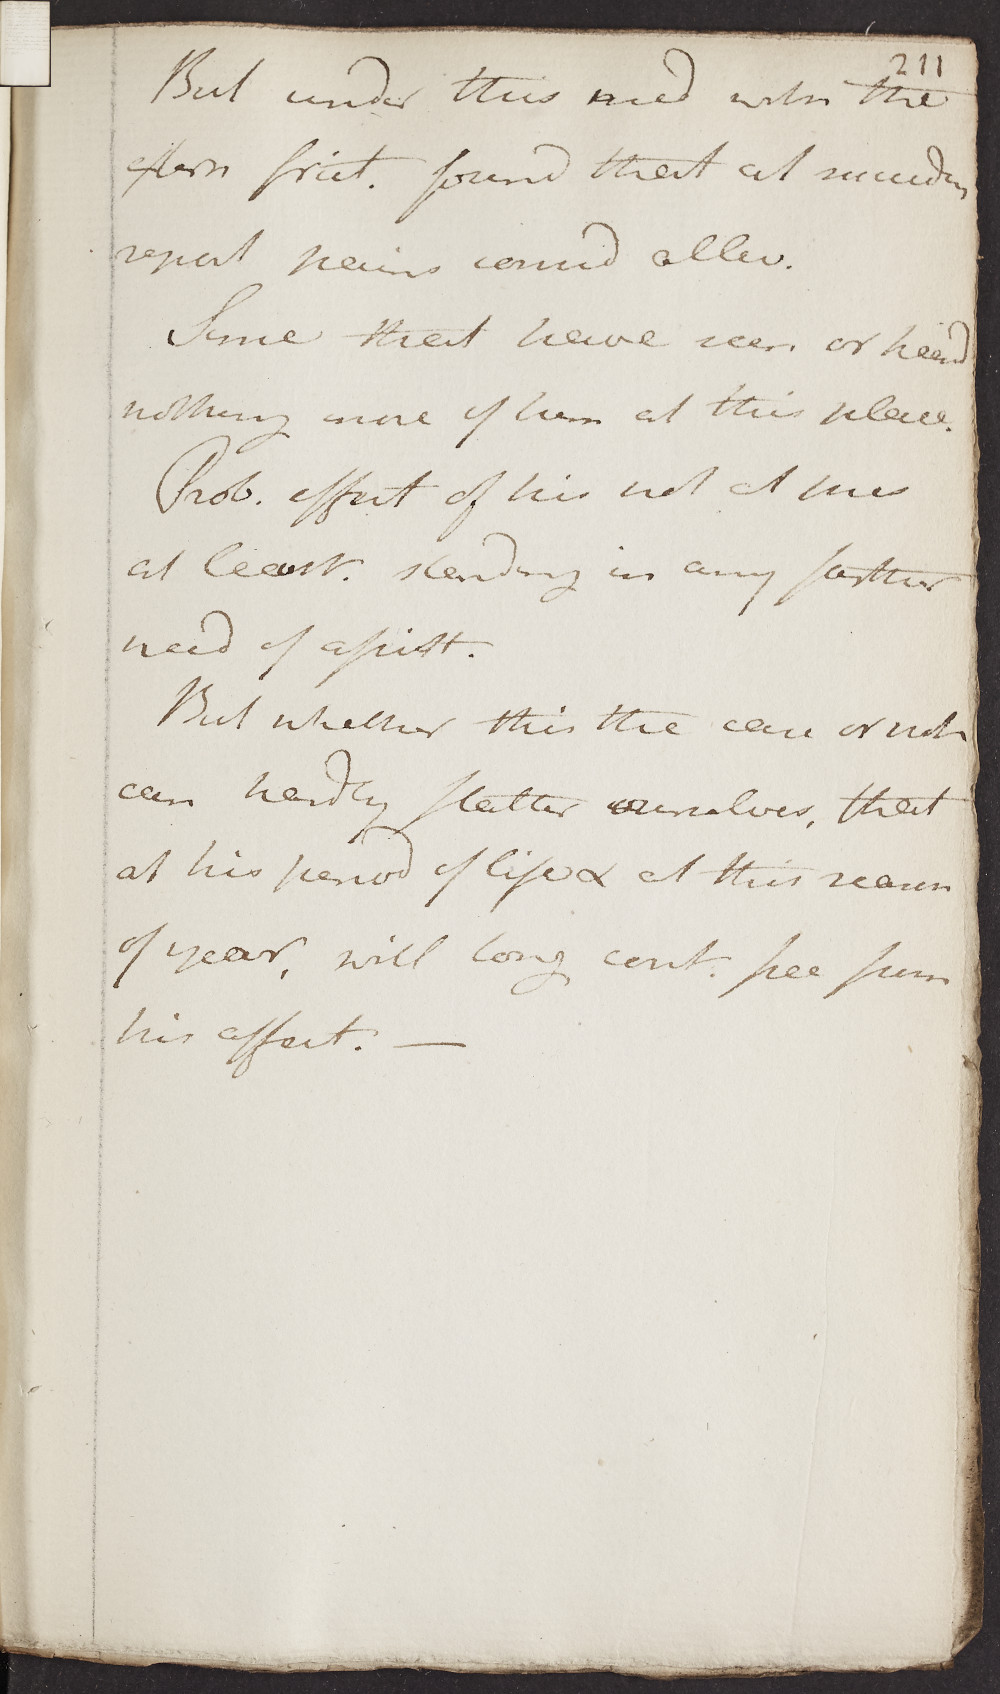 211
But under this med when the
extern frict. found that at succeeding
report pains consid allev.
Since that have seen or heard
nothing more of him at this place.
Prob. effect of his not at pres
at least. standing in any farther
need of assist.
But whether this the case or not
can hardly flatter ourselves, that
at his period of life & at this season
of year, will long cont. free from
his affect. —